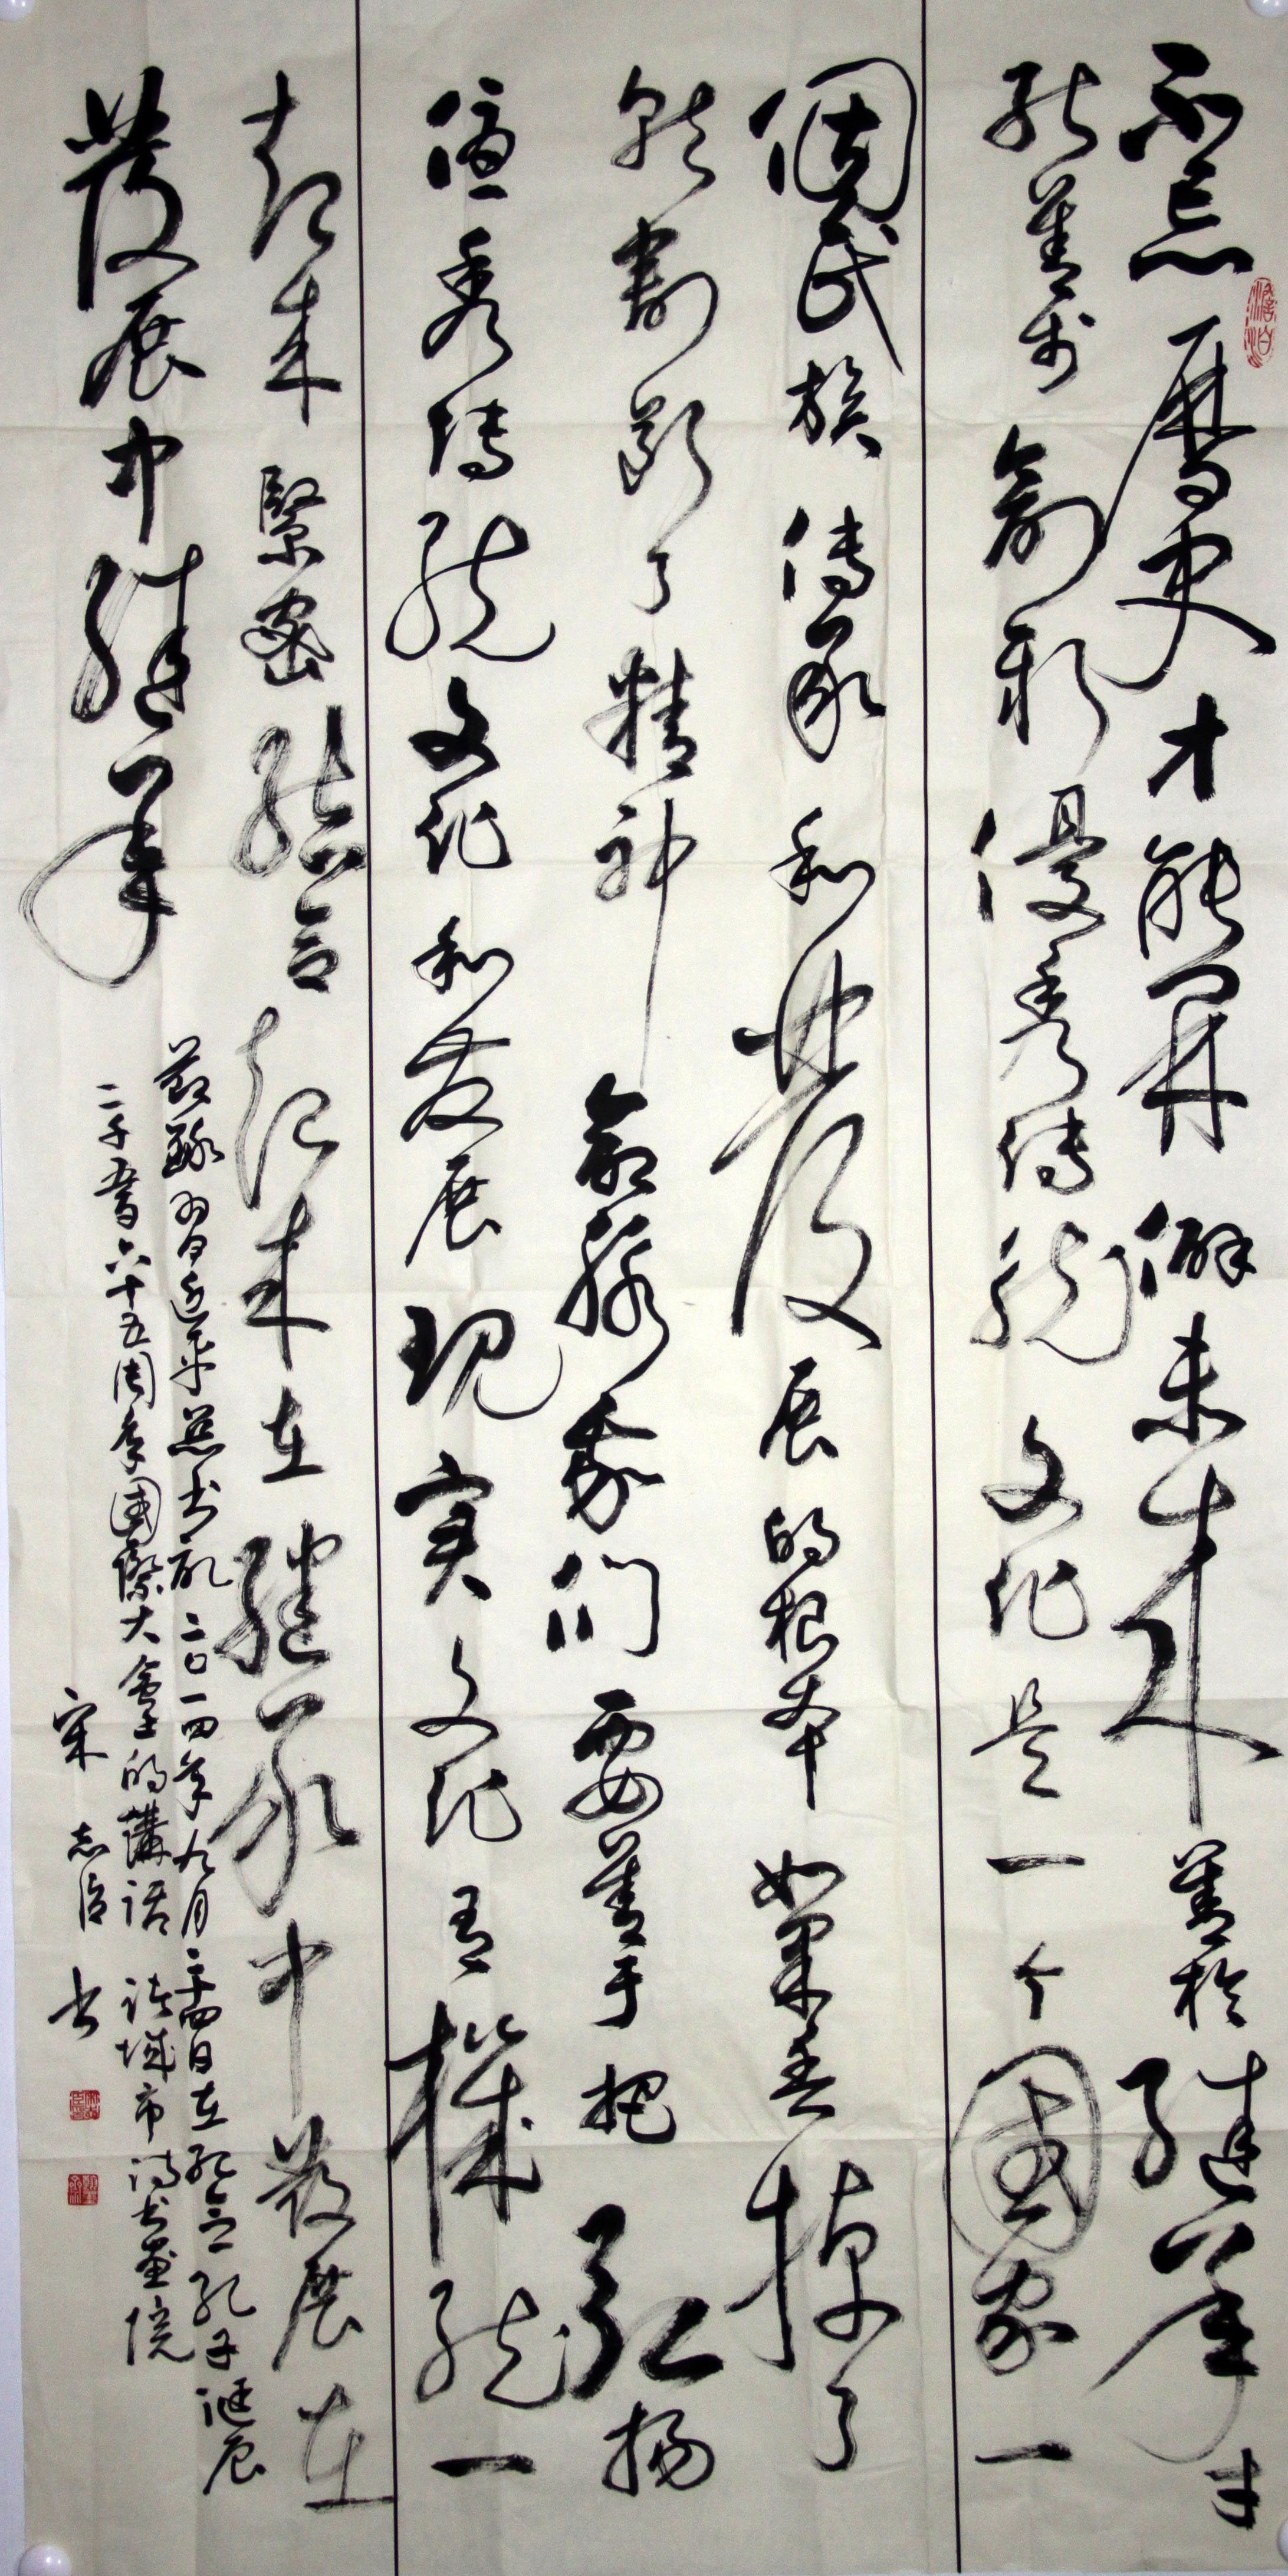 不忘歷史才能開闢未来善於继承才
能善於創新優秀传统文化是一个國家一
個民族傳承和發展的根本如果丢掉了
就割断了精神命脉我們要善于把弘扬
優秀传统文化和发展现实文化有機统一
起来緊密结合起来在继承中發展在
發展中继承
敬録習近平总书記二〇一四年九月二十四日在纪念孔子诞辰
二千五百六十五周年國際大會上的講话 诸城市诗书画院
宋志信 书